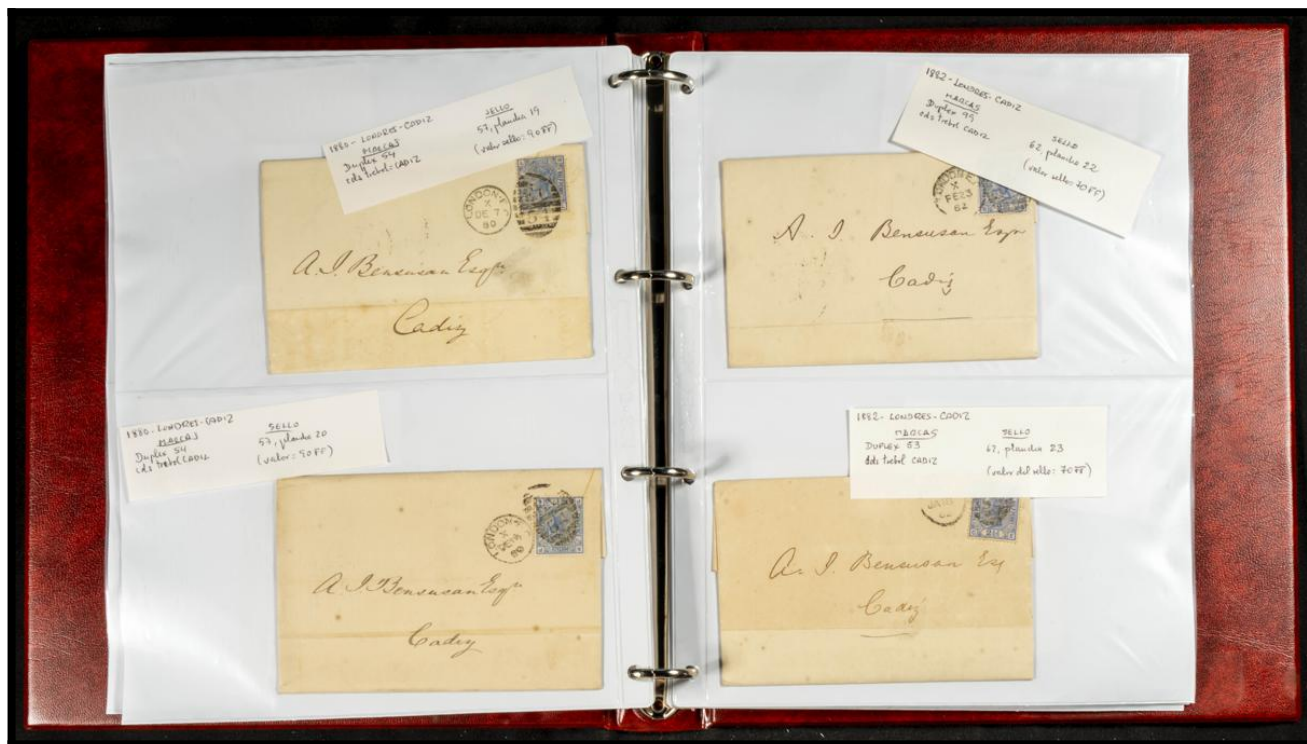 1880 - LONDRES - CADIZ
MARCAS
Duplex 54
cds trebol = CADIZ
SELLO
57, planche 19
(valor sello: 90FF)
LONDON E.C
X
DE 7
80
A. I. Bensusan Esqr
Cadiz
1880 - LONDRES - CADIZ
MARCAS
Duplex 54
cds trebol CADIZ
SELLO
57, planche 20
(valor: 90FF)
LONDON E.C
X
80
A. I. Bensusan Esqr
Cadiz
1882 - LONDRES - CADIZ
MARCAS
Duplex 95
cds trebol CADIZ
SELLO
62, planche 22
(valor sello: 70FF)
LONDON E.C
X
FE 23
82
A. I. Bensusan Esqr
Cadiz
1882 - LONDRES - CADIZ
MARCAS
DUPLEX 63
cds trebol CADIZ
SELLO
62, planche 23
(valor del sello: 70FF)
A. I. Bensusan Esq
Cadiz